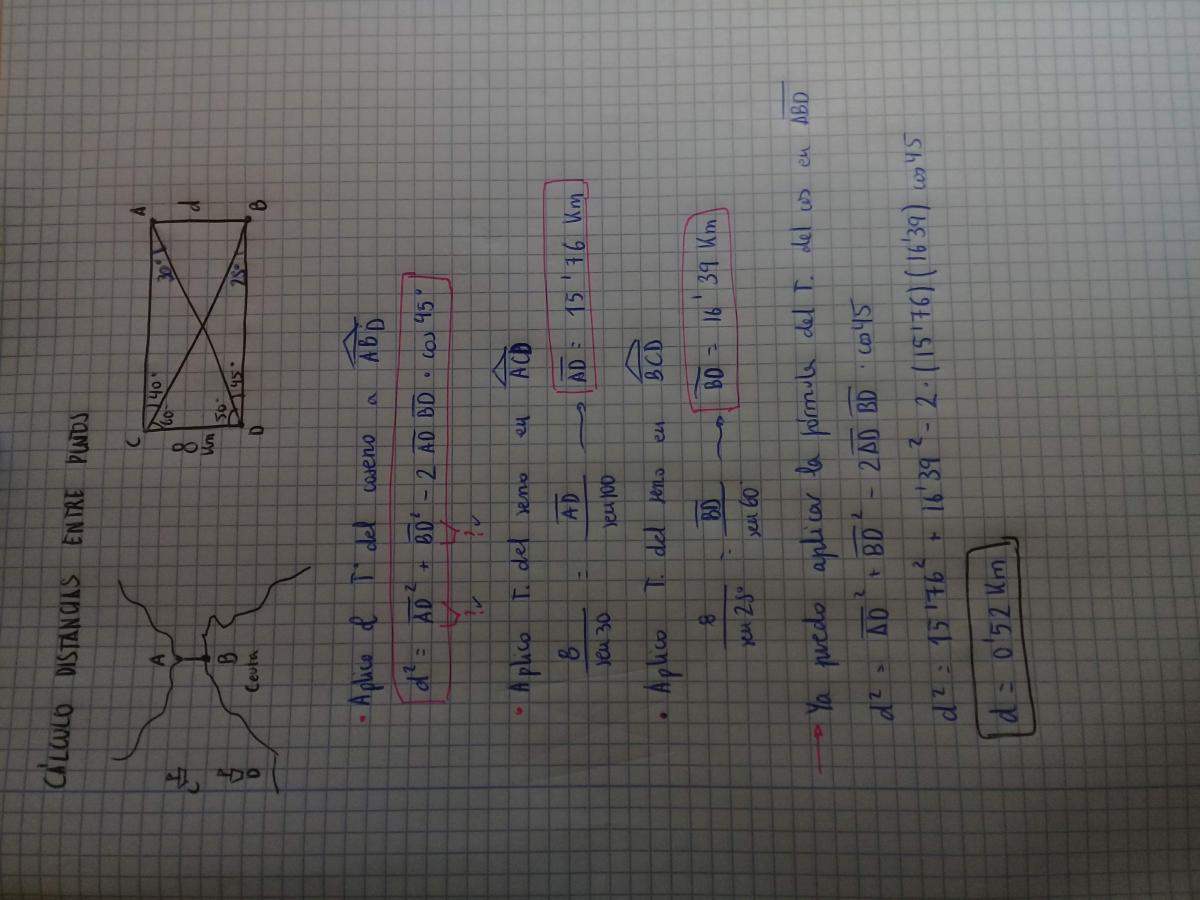 CÁLCULO DISTANCIAS ENTRE PUNTOS
A
B
Ceuta
C
D
C
A
40°
60°
30°
8
km
d
50°
45°
25°
D
B
• Aplico el Tª del coseno a ABD
d² = AD² + BD² - 2 AD BD · cos 45°
?✓ ?✓
• Aplico T. del seno en ACD
8 / sen 30 = AD / sen 100 → AD = 15'76 Km
• Aplico T. del seno en BCD
8 / sen 25° = BD / sen 60 → BD = 16'39 Km
→ Ya puedo aplicar la fórmula del T. del cos en ABD
d² = AD² + BD² - 2AD BD · cos 45
d² = 15'76² + 16'39² - 2 · (15'76)(16'39) cos 45
d = 0'52 Km